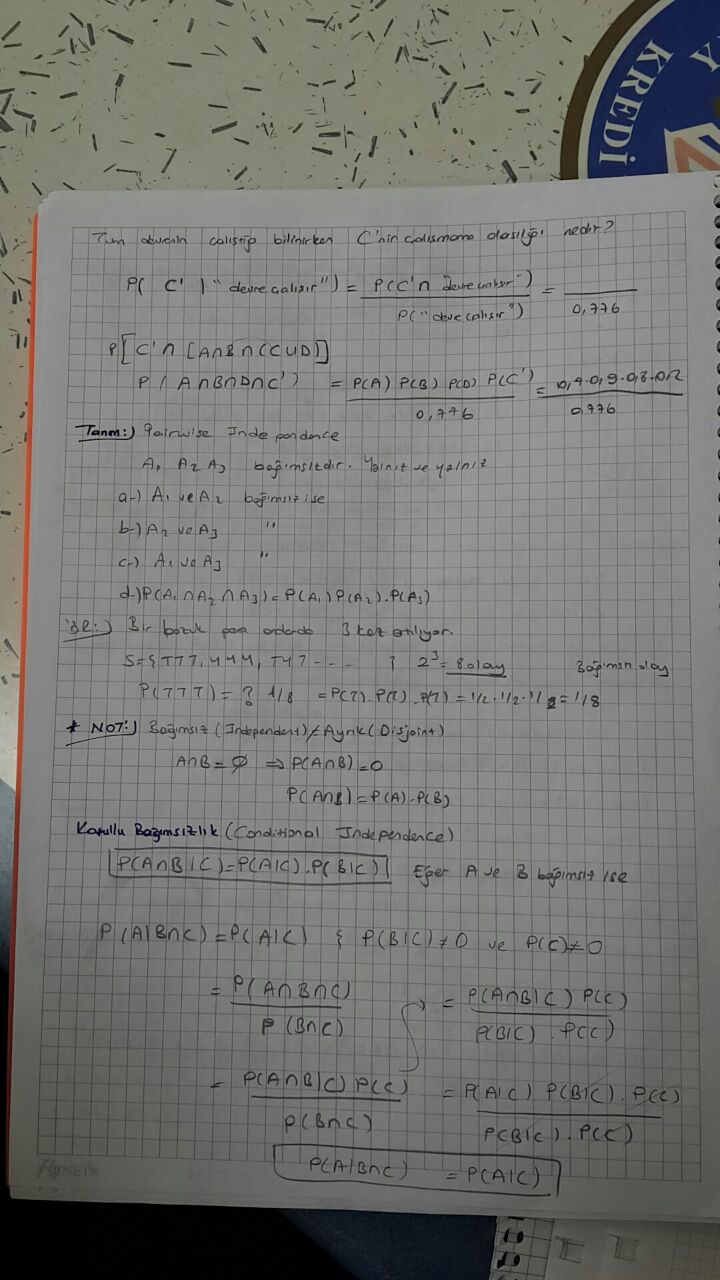 KREDİ
Tüm devrenin çalıştığı bilinirken C'nin çalışmama olasılığı nedir?
P( C' | "devre çalışır") = P(C'∩ devre çalışır") / P("devre çalışır") = / 0,776
P[C'∩[A∩B∩(C∪D)]
P(A∩B∩D∩C') = P(A) P(B) P(D) P(C') / 0,776 = 0,9.0,9.0,8.0,2 / 0,776
Tanım:) Pairwise Independence
A₁ A₂ A₃ bağımsızdır. Yalnız ve yalnız
a-) A₁ ve A₂ bağımsız ise
b-) A₂ ve A₃ "
c-) A₁ ve A₃ "
d-) P(A₁∩A₂∩A₃) = P(A₁) P(A₂). P(A₃)
Bir bozuk para 3 kez atılıyor.
S={TTT, YYY, TYT --- } 2³ = 8 olay Bağımsız olay
P(TTT) = ? 1/8 = P(T). P(T). P(T) = 1/2. 1/2. 1/2 = 1/8
* NOT:) Bağımsız (Independent) ≠ Ayrık (Disjoint)
A∩B = ∅ ⇒ P(A∩B) = 0
P(A∩B) = P(A). P(B)
Koşullu Bağımsızlık (Conditional Independence)
P(A∩B|C) = P(A|C). P(B|C) Eğer A ve B bağımsız ise
P(A|B∩C) = P(A|C) } P(B|C) ≠ 0 ve P(C) ≠ 0
= P(A∩B∩C) / P(B∩C) = P(A∩B|C) P(C) / P(B|C). P(C)
= P(A∩B|C) P(C) / P(B∩C) = P(A|C) P(B|C). P(C) / P(B|C). P(C)
P(A|B∩C) = P(A|C)